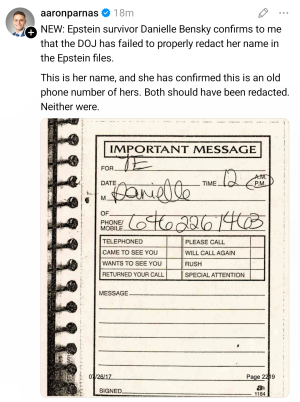 aaronparnas 18m
NEW: Epstein survivor Danielle Bensky confirms to me
that the DOJ has failed to properly redact her name in
the Epstein files.
This is her name, and she has confirmed this is an old
phone number of hers. Both should have been redacted.
Neither were.
IMPORTANT MESSAGE
FOR JE
DATE TIME 12 A.M. P.M.
M Danielle
OF
PHONE/ MOBILE [phone number omitted for privacy]
TELEPHONED PLEASE CALL
CAME TO SEE YOU WILL CALL AGAIN
WANTS TO SEE YOU RUSH
RETURNED YOUR CALL SPECIAL ATTENTION
MESSAGE
Page 2219
SIGNED
1184